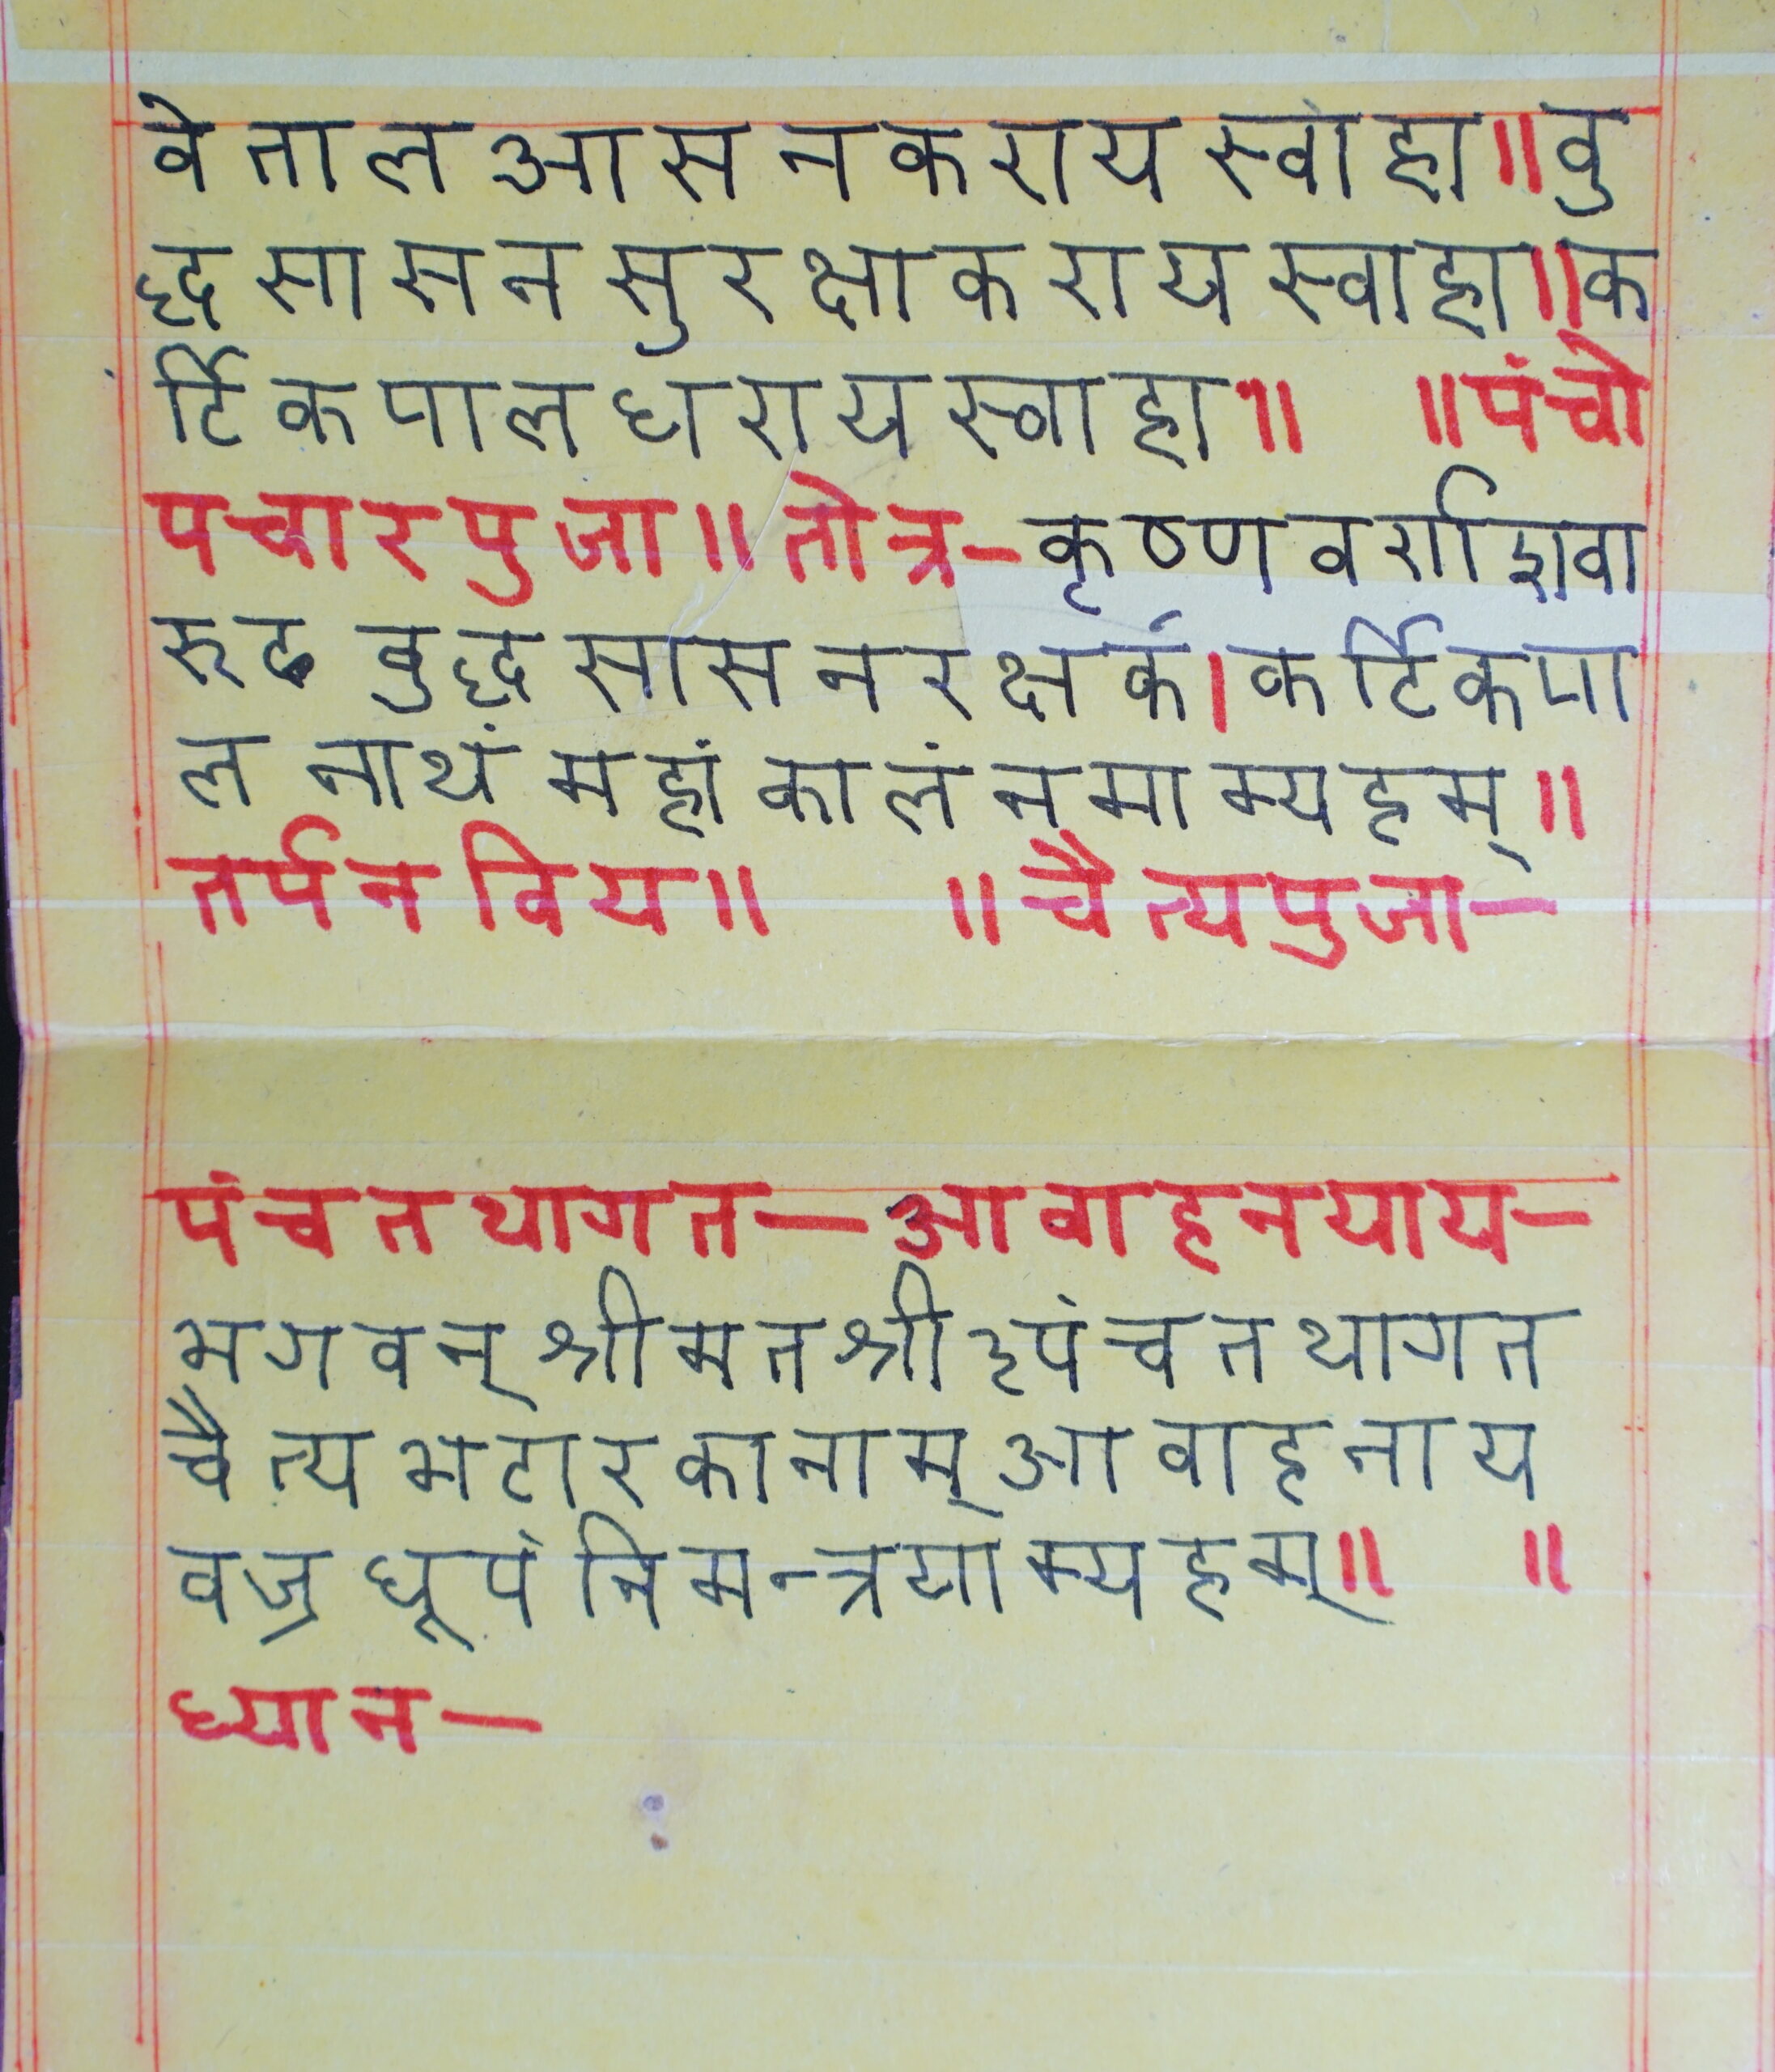 वेतालआसनकरायस्वाहा॥वु
द्धसासनसुरक्षाकरायस्वाहा॥क
र्टिकपालधरायस्वाहा॥ ॥पंचो
पचारपुजा॥तोत्र-कृष्णवर्णाशवा
रुढ वुद्धसासनरक्षकं।कर्टिकपा
ल नाथं महांकालंनमाम्यहम्॥
तर्पनविय॥ ॥चैत्यपुजा-
पंचतथागत-आवाहनयाय-
भगवन्श्रीमतश्री३पंचतथागत
चैत्यभटारकानाम्आवाहनाय
वज्रधूपंनिमन्त्रयाम्यहम्॥ ॥
ध्यान-